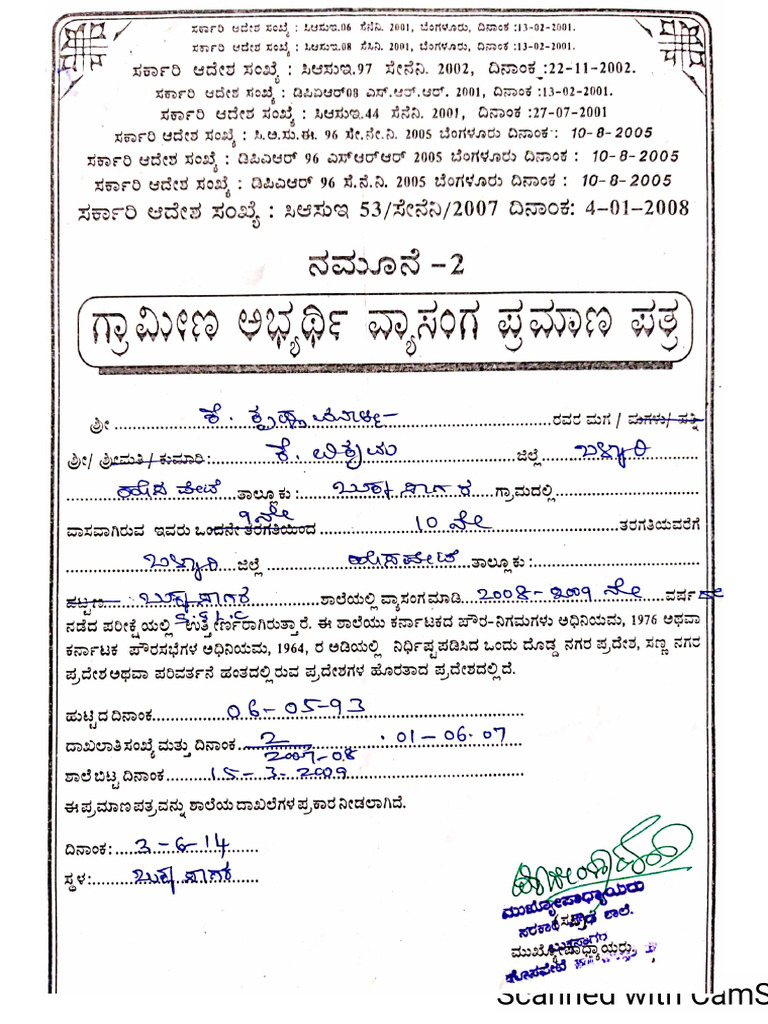 ಸರ್ಕಾರಿ ಆದೇಶ ಸಂಖ್ಯೆ : ಸಿಆಸುಇ.06 ಸೇನೆನಿ. 2001, ಬೆಂಗಳೂರು, ದಿನಾಂಕ :13-02-2001.
ಸರ್ಕಾರಿ ಆದೇಶ ಸಂಖ್ಯೆ : ಸಿಆಸುಇ.08 ಸೆಸಿನಿ. 2001, ಬೆಂಗಳೂರು, ದಿನಾಂಕ :13-02-2001.
ಸರ್ಕಾರಿ ಆದೇಶ ಸಂಖ್ಯೆ : ಸಿಆಸುಇ.97 ಸೇನೆನಿ. 2002, ದಿನಾಂಕ :22-11-2002.
ಸರ್ಕಾರಿ ಆದೇಶ ಸಂಖ್ಯೆ : ಡಿಪಿಎಆರ್08 ಎಸ್.ಆರ್.ಆರ್. 2001, ದಿನಾಂಕ :13-02-2001.
ಸರ್ಕಾರಿ ಆದೇಶ ಸಂಖ್ಯೆ : ಸಿಆಸುಇ.44 ಸೆನೆನಿ. 2001, ದಿನಾಂಕ :27-07-2001
ಸರ್ಕಾರಿ ಆದೇಶ ಸಂಖ್ಯೆ : ಸಿ.ಆ.ಸು.ಈ. 96 ಸೇ.ನೇ.ನಿ. 2005 ಬೆಂಗಳೂರು ದಿನಾಂಕ : 10-8-2005
ಸರ್ಕಾರಿ ಆದೇಶ ಸಂಖ್ಯೆ : ಡಿಪಿಎಆರ್ 96 ಎಸ್ಆರ್ಆರ್ 2005 ಬೆಂಗಳೂರು ದಿನಾಂಕ : 10-8-2005
ಸರ್ಕಾರಿ ಆದೇಶ ಸಂಖ್ಯೆ : ಡಿಪಿಎಆರ್ 96 ಸೆ.ನೆ.ನಿ. 2005 ಬೆಂಗಳೂರು ದಿನಾಂಕ : 10-8-2005
ಸರ್ಕಾರಿ ಆದೇಶ ಸಂಖ್ಯೆ : ಸಿಆಸುಇ 53/ಸೇನೆನಿ/2007 ದಿನಾಂಕ: 4-01-2008
ನಮೂನೆ -2
ಗ್ರಾಮೀಣ ಅಭ್ಯರ್ಥಿ ವ್ಯಾಸಂಗ ಪ್ರಮಾಣ ಪತ್ರ
ಶ್ರೀ ಕೆ. ಕೃಷ್ಣ ರವರ ಮಗ / ಮಗಳು/ ಪತ್ನಿ
ಶ್ರೀ/ ಶ್ರೀಮತಿ / ಕುಮಾರಿ : ಕೆ. ವಿಕ್ರಮ ಜಿಲ್ಲೆ ಬಳ್ಳಾರಿ
ಹೊಸಪೇಟೆ ತಾಲ್ಲೂಕು : ಬುಕ್ಕಸಾಗರ ಗ್ರಾಮದಲ್ಲಿ
9ನೇ
ವಾಸವಾಗಿರುವ ಇವರು ಒಂದನೇ ತರಗತಿಯಿಂದ 10 ನೇ ತರಗತಿಯವರೆಗೆ
ಬಳ್ಳಾರಿ ಜಿಲ್ಲೆ ಹೊಸಪೇಟೆ ತಾಲ್ಲೂಕು :
ಪಟ್ಟಣ ಬುಕ್ಕಸಾಗರ ಶಾಲೆಯಲ್ಲಿ ವ್ಯಾಸಂಗ ಮಾಡಿ 2008-2009 ನೇ ವರ್ಷ
S.S.L.C
ನಡೆದ ಪರೀಕ್ಷೆಯಲ್ಲಿ ಉತ್ತೀರ್ಣರಾಗಿರುತ್ತಾರೆ. ಈ ಶಾಲೆಯು ಕರ್ನಾಟಕದ ಪೌರ-ನಿಗಮಗಳು ಅಧಿನಿಯಮ, 1976 ಅಥವಾ
ಕರ್ನಾಟಕ ಪೌರಸಭೆಗಳ ಅಧಿನಿಯಮ, 1964, ರ ಅಡಿಯಲ್ಲಿ ನಿರ್ಧಿಷ್ಟಪಡಿಸಿದ ಒಂದು ದೊಡ್ಡ ನಗರ ಪ್ರದೇಶ, ಸಣ್ಣ ನಗರ
ಪ್ರದೇಶ ಅಥವಾ ಪರಿವರ್ತನೆ ಹಂತದಲ್ಲಿರುವ ಪ್ರದೇಶಗಳ ಹೊರತಾದ ಪ್ರದೇಶದಲ್ಲಿದೆ.
ಹುಟ್ಟಿದ ದಿನಾಂಕ 06-05-93
ದಾಖಲಾತಿ ಸಂಖ್ಯೆ ಮತ್ತು ದಿನಾಂಕ 2/2007-08 01-06-07
ಶಾಲೆ ಬಿಟ್ಟ ದಿನಾಂಕ 15-3-2009
ಈ ಪ್ರಮಾಣ ಪತ್ರವನ್ನು ಶಾಲೆಯ ದಾಖಲೆಗಳ ಪ್ರಕಾರ ನೀಡಲಾಗಿದೆ.
ದಿನಾಂಕ: 3-6-14
ಸ್ಥಳ: ಬುಕ್ಕಸಾಗರ
ಮುಖ್ಯೋಪಾಧ್ಯಾಯರು
ಸರಕಾರಿ ಪ್ರೌಢ ಶಾಲೆ.
(ಸಹಿ)
ಬುಕ್ಕಸಾಗರ
ಮುಖ್ಯೋಪಾಧ್ಯಾಯರು,
ಹೊಸಪೇಟೆ
Scanned with CamS